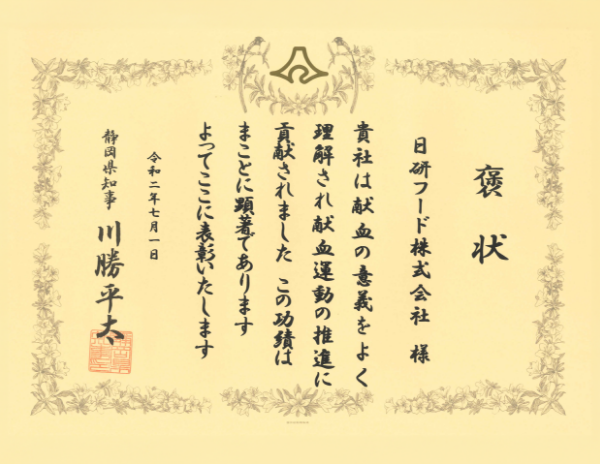 褒状
日研フード株式会社 様
貴社は献血の意義をよく
理解され献血運動の推進に
貢献されました この功績は
まことに顕著であります
よってここに表彰いたします
令和二年七月一日
静岡県知事 川勝平太